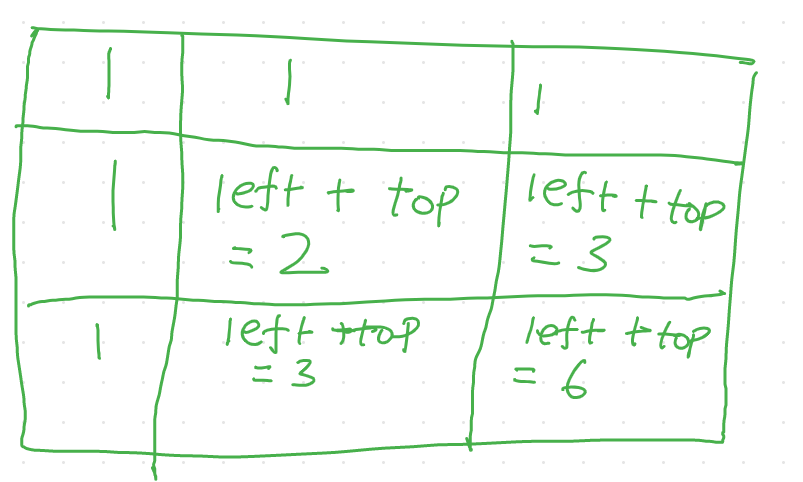 1 1 1
1 left + top left + top
= 2 = 3
1 left + top left + top
= 3 = 6